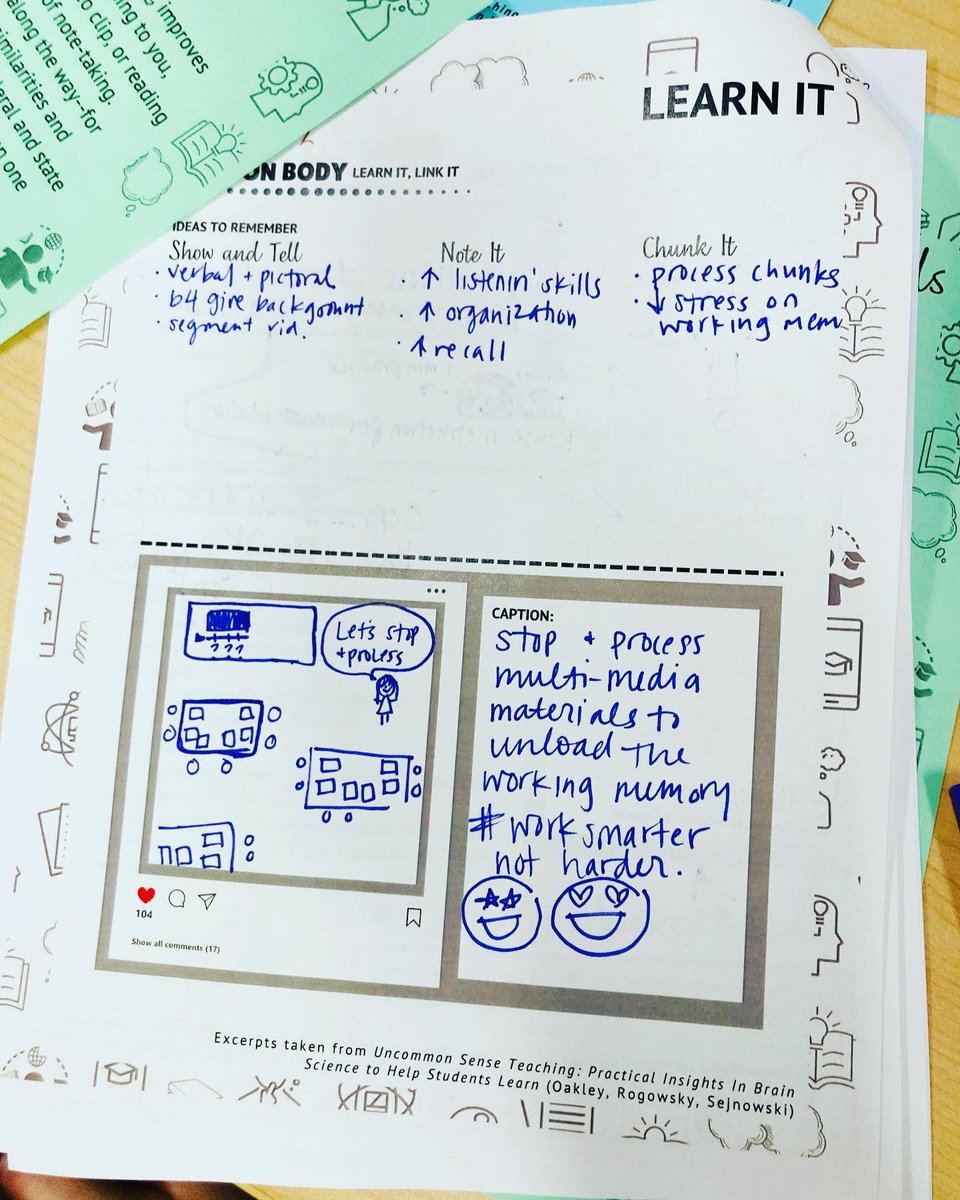 improves
to clip, or reading
ing to you,
of note-taking.
along the way–for
similarities and
eral and state
n one
LEARN IT
ON BODY LEARN IT, LINK IT
IDEAS TO REMEMBER
Show and Tell
· verbal + pictoral
· b4 give background
· segment vid.
Note It
· ↑ listenin' skills
· ↑ organization
· ↑ recall
Chunk It
· process chunks
· ↓ stress on
working mem
???
Let's stop
+ process
104
Show all comments (17)
CAPTION:
stop + process
multi-media
materials to
unload the
working memory
#work smarter
not harder.
Excerpts taken from Uncommon Sense Teaching: Practical Insights In Brain
Science to Help Students Learn (Oakley, Rogowsky, Sejnowski)